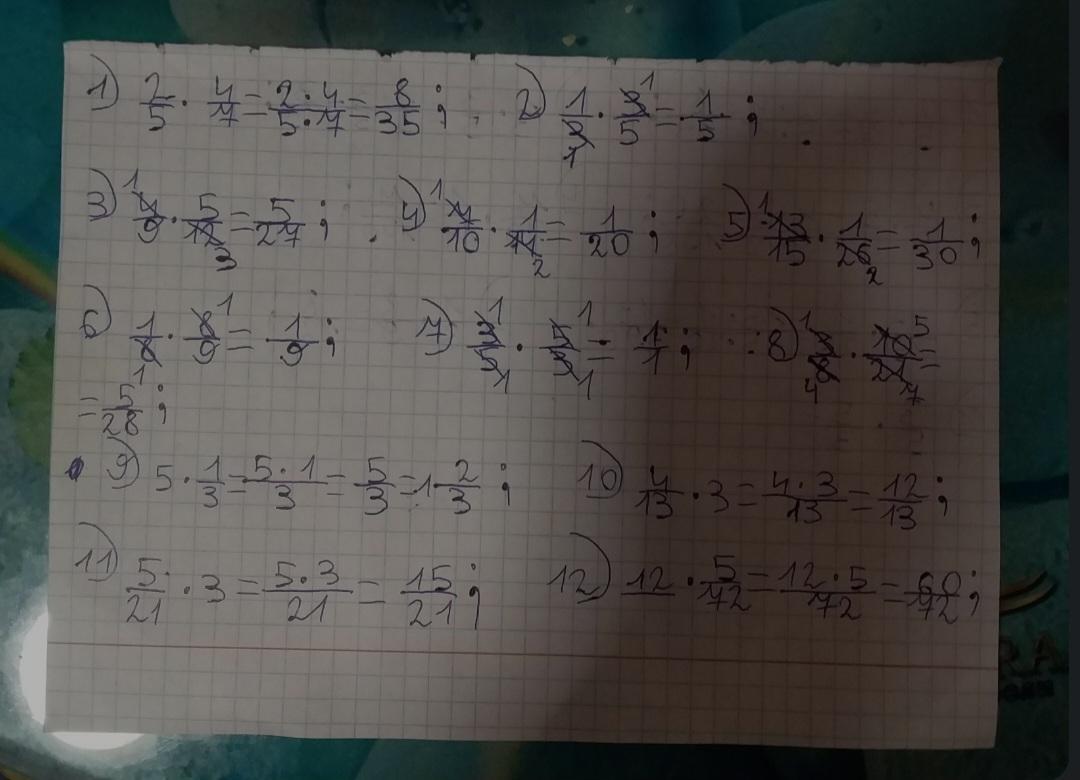 1) 2/5 · 4/7 = 2·4/5·7 = 8/35; 2) 1/3 · 3/5 = 1/5;
3) 4/9 · 5/12 = 5/27; 4) 1/10 · 1/2 = 1/20; 5) 13/15 · 1/26 = 1/30;
6) 1/8 · 8/9 = 1/9; 7) 3/5 · 5/3 = 1/1; 8) 3/8 · 10/21 =
= 5/28;
9) 5 · 1/3 = 5·1/3 = 5/3 = 1 2/3; 10) 4/13 · 3 = 4·3/13 = 12/13;
11) 5/21 · 3 = 5·3/21 = 15/21; 12) 12 · 5/72 = 12·5/72 = 60/72;
RA